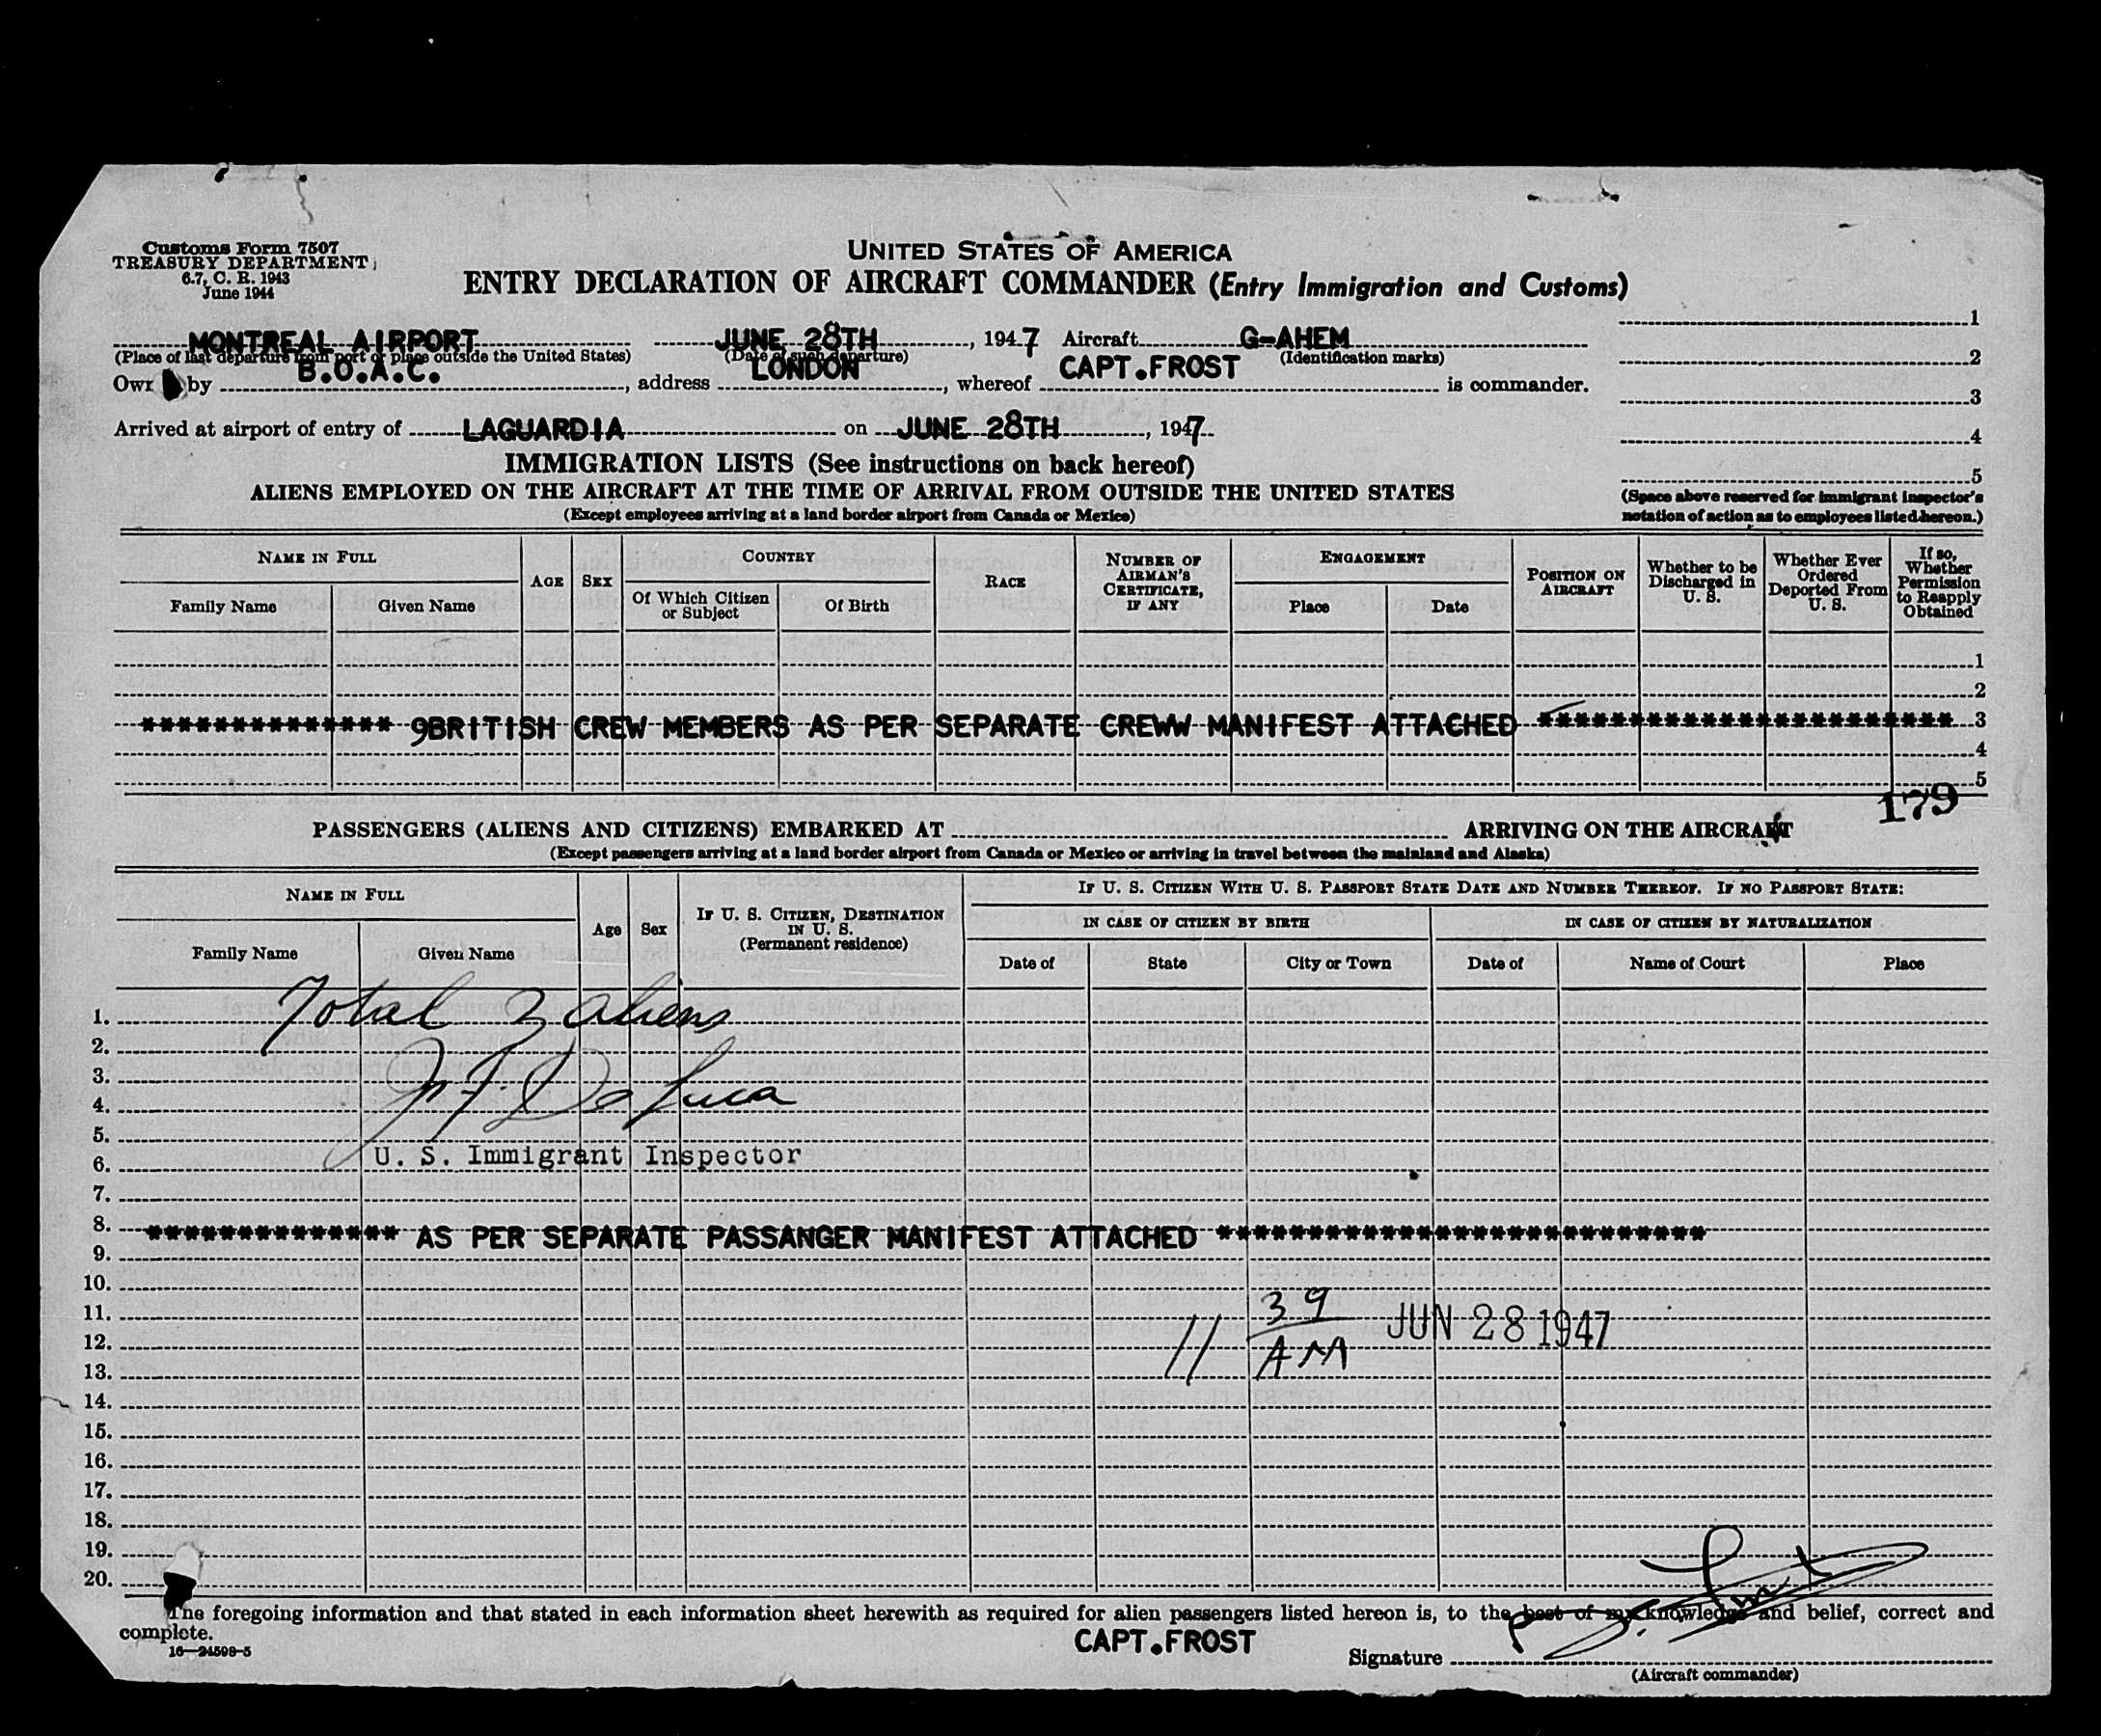 Customs Form 7507
TREASURY DEPARTMENT
6.7, C. R. 1943
June 1944
UNITED STATES OF AMERICA
ENTRY DECLARATION OF AIRCRAFT COMMANDER (Entry Immigration and Customs)
MONTREAL AIRPORT JUNE 28TH, 1947 Aircraft G-AHEM
(Place of last departure from port or place outside the United States) (Date of such departure) (Identification marks)
Own by B.O.A.C., address LONDON, whereof CAPT.FROST is commander.
Arrived at airport of entry of LAGUARDIA on JUNE 28TH, 1947
1
2
3
4
5
(Space above reserved for immigrant inspector's
notation of action as to employees listed hereon.)
IMMIGRATION LISTS (See instructions on back hereof)
ALIENS EMPLOYED ON THE AIRCRAFT AT THE TIME OF ARRIVAL FROM OUTSIDE THE UNITED STATES
(Except employees arriving at a land border airport from Canada or Mexico)
NAME IN FULL
Family Name Given Name
AGE
SEX
COUNTRY
Of Which Citizen or Subject
Of Birth
RACE
NUMBER OF AIRMAN'S CERTIFICATE, IF ANY
ENGAGEMENT
Place Date
POSITION ON AIRCRAFT
Whether to be Discharged in U. S.
Whether Ever Ordered Deported From U. S.
If so, Whether Permission to Reapply Obtained
1
2
************** 9BRITISH CREW MEMBERS AS PER SEPARATE CREWW MANIFEST ATTACHED *********************** 3
4
5
179
PASSENGERS (ALIENS AND CITIZENS) EMBARKED AT ARRIVING ON THE AIRCRAFT
(Except passengers arriving at a land border airport from Canada or Mexico or arriving in travel between the mainland and Alaska)
NAME IN FULL
Family Name Given Name
Age
Sex
IF U. S. CITIZEN, DESTINATION IN U. S.
(Permanent residence)
IF U. S. CITIZEN WITH U. S. PASSPORT STATE DATE AND NUMBER THEREOF. IF NO PASSPORT STATE:
IN CASE OF CITIZEN BY BIRTH IN CASE OF CITIZEN BY NATURALIZATION
Date of State City or Town Date of Name of Court Place
1. Total 3 aliens
2.
3.
4.
5.
6. U. S. Immigrant Inspector
7.
8. ************** AS PER SEPARATE PASSANGER MANIFEST ATTACHED ***************************
9.
10.
11. 39 JUN 28 1947
12. 11 AM
13.
14.
15.
16.
17.
18.
19.
20.
The foregoing information and that stated in each information sheet herewith as required for alien passengers listed hereon is, to the best of my knowledge and belief, correct and
complete.
CAPT.FROST
16—24598-5
Signature
(Aircraft commander)